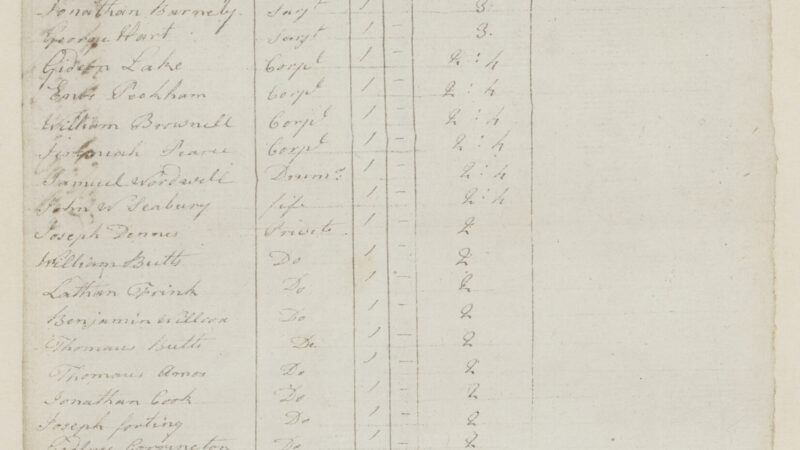 Jonathan Barnely Sarjt 3
George Hart Sarjt / – 3
Gideon Lake Corpl / – 2 : 4
Peckham Corpl / – 2 : 4
William Brownell Corpl / – 2 : 4
Jeremiah Pearce Corpl / – 2 : 4
Samuel Wordwell Drumr / – 2 : 4
John W Seabury fife / – 2 : 4
Joseph Dennes Privets / – 2
William Butts Do / – 2
Lathan Frink Do / – 2
Benjamin Willcox Do / – 2
Thomaus Butts Do / – 2
Thomaus Amos Do / – 2
Jonathan Cook Do / – 2
Joseph forting Do / – 2
Do / – 2